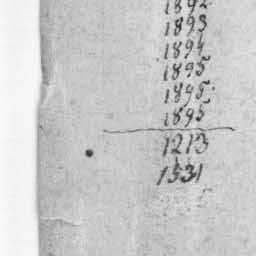 1892
1893
1894
1895
1895
1895
1213
1531